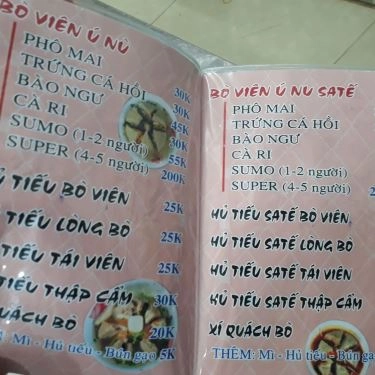 BÒ VIÊN Ú NÙ
PHÔ MAI 30K
TRỨNG CÁ HỒI 30K
BÀO NGƯ 45K
CÀ RI 30K
SUMO (1-2 người) 55K
SUPER (4-5 người) 200K
HỦ TIẾU BÒ VIÊN 25K
TIẾU LÒNG BÒ 25K
TIẾU TÁI VIÊN 25K
TIẾU THẬP CẨM 30K
QUÁCH BÒ 20K
Mì - Hủ tiếu - Bún gạo 5K
BÒ VIÊN Ú NU SATẾ
PHÔ MAI
TRỨNG CÁ HỒI
BÀO NGƯ
CÀ RI
SUMO (1-2 người)
SUPER (4-5 người)
HỦ TIẾU SATẾ BÒ VIÊN
HỦ TIẾU SATẾ LÒNG BÒ
HỦ TIẾU SATẾ TÁI VIÊN
HỦ TIẾU SATẾ THẬP CẨM
XÍ QUÁCH BÒ
THÊM: Mì - Hủ tiếu - Bún gạo